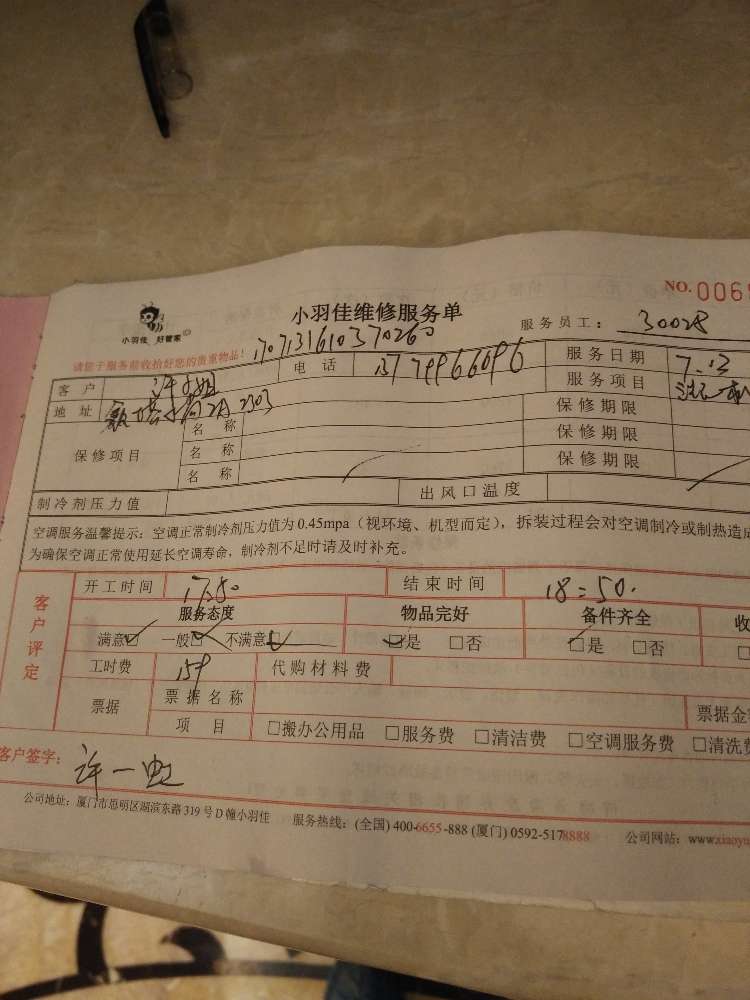 NO. 006
小羽佳 好管家
小羽佳维修服务单
服务员工： 30028
请您于服务前收拾好您的贵重物品！ 170713161037026
客户 许小姐 电话 13779966096 服务日期 7.13
地址 2303 服务项目
保修项目 名称 保修期限
名称 保修期限
名称 保修期限
制冷剂压力值 出风口温度
空调服务温馨提示：空调正常制冷剂压力值为 0.45mpa（视环境、机型而定），拆装过程会对空调制冷或制热造成
为确保空调正常使用延长空调寿命，制冷剂不足时请及时补充。
客户评定
开工时间 17:50 结束时间 18:50.
服务态度 物品完好 备件齐全 收
满意□ 一般□ 不满意□ □是 □否 □是 □否 □
工时费 159 代购材料费
票据 票据名称 票据金
项目 □搬办公用品 □服务费 □清洁费 □空调服务费 □清洗费
客户签字： 许一虹
公司地址：厦门市思明区湖滨东路 319 号 D 幢小羽佳 服务热线：(全国) 400-6655-888 (厦门) 0592-5178888 公司网站：www.xiaoyu